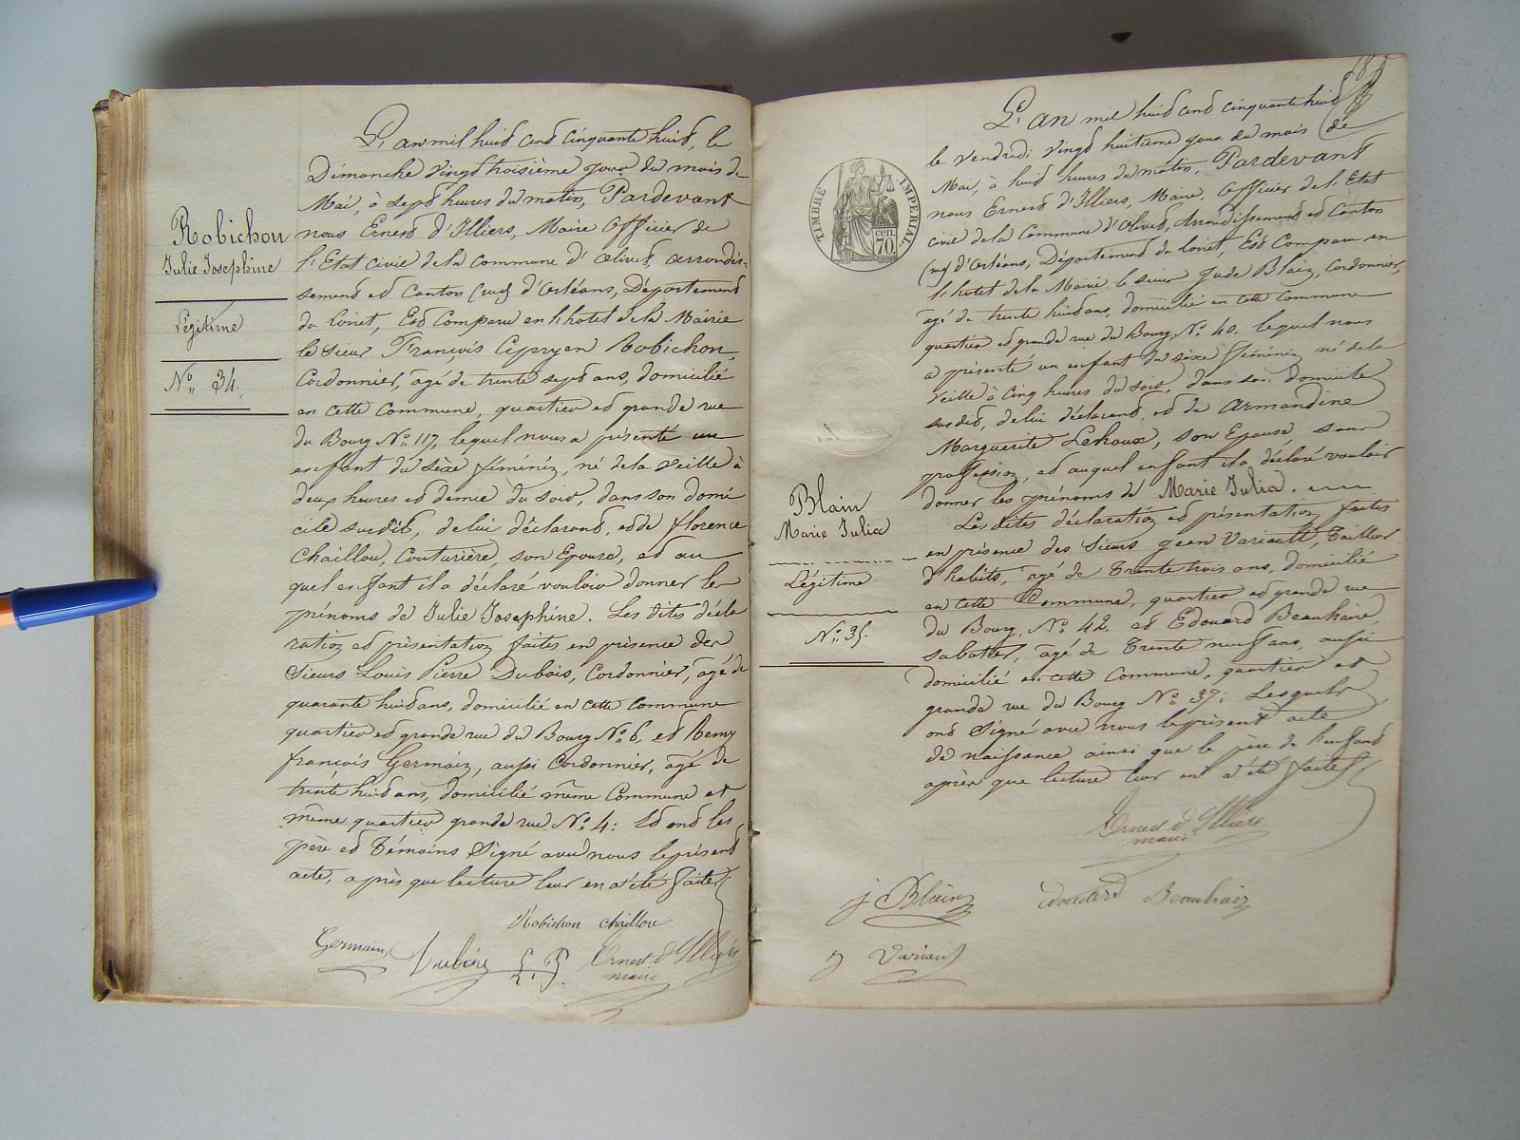 Robichon
Julie Josephine
Légitime
No. 34.
L'an mil huit cent cinquante huit, le
Dimanche vingt troisième jour du mois de
Mai, à sept heures du matin, Pardevant
nous Ernest d'Illiers, Maire Officier de
l'Etat civil de la Commune d'Olivet, arrondis-
sement et Canton (sud) d'Orléans, Département
du Loiret, Est Comparu en l'hotel de la Mairie
le Sieur François Cypryen Robichon,
Cordonnier, agé de trente sept ans, domicilié
en cette Commune, quartier et grande rue
du Bourg No. 117, lequel nous a présenté un
enfant du sèxe féminin, né de la veille à
deux heures et demie du soir, dans son domi
cile susdit, de lui déclarant, et de florence
Chaillou, Couturière, son Epouse, et au
quel enfant il a déclaré vouloir donner les
prénoms de Julie Josephine. Les dites décla
ration et présentation faites en présence des
Sieurs Louis Pierre Dubois, Cordonnier, agé de
quarante huit ans, domicilié en cette Commune
quartier et grande rue du Bourg No. 6, et Remy
françois Germain, aussi Cordonnier, agé de
trente huit ans, domicilié même Commune et
même quartier grande rue No. 4: Et ont les
père et Témoins Signé avec nous le présent
acte, après que lecture leur en a été faite
Robichon chaillou
Germain Dubois L. P. Ernest d'Illiers
maire
TIMBRE IMPERIAL
CEN.
70.
Blain
Marie Julia
Légitime
No. 35.
L'an mil huit cent cinquante huit
le Vendredi vingt huitième jour du mois de
Mai, à huit heures du matin, Pardevant
nous Ernest d'Illiers, Maire, Officier de l'Etat
civil de la Commune d'Olivet, Arrondissement et Canton
(sud) d'Orléans, Département du Loiret, Est Comparu en
l'hotel de la Mairie le sieur Jude Blain, Cordonnier,
agé de trente huit ans, domicilié en cette Commune
quartier et grande rue du Bourg No. 40. lequel nous
a présenté un enfant du sèxe féminin, né de la
veille à Cinq heures du soir, dans son domicile
susdit, de lui déclarant, et de Armandine
Marguerite Lehoux, son Epouse sans
profession, et auquel enfant il a déclaré vouloir
donner les prénoms de Marie Julia.
Les dites déclaration et présentation faites
en présence des Sieurs Jean Variault, Tailleur
d'habits, agé de Trente trois ans, domicilié
en cette Commune, quartier et grande rue
du Bourg, No. 42. et Edouard Beauhaire,
sabotier, agé de Trente neuf ans, aussi
domicilié en cette Commune, quartier et
grande rue du Bourg No. 37: Lesquels
ont Signé avec nous le présent acte
de naissance ainsi que le père de l'enfant
après que lecture leur en a été faite
Ernest d'Illiers
maire
j Blain edouard Beauhaire
J Variault